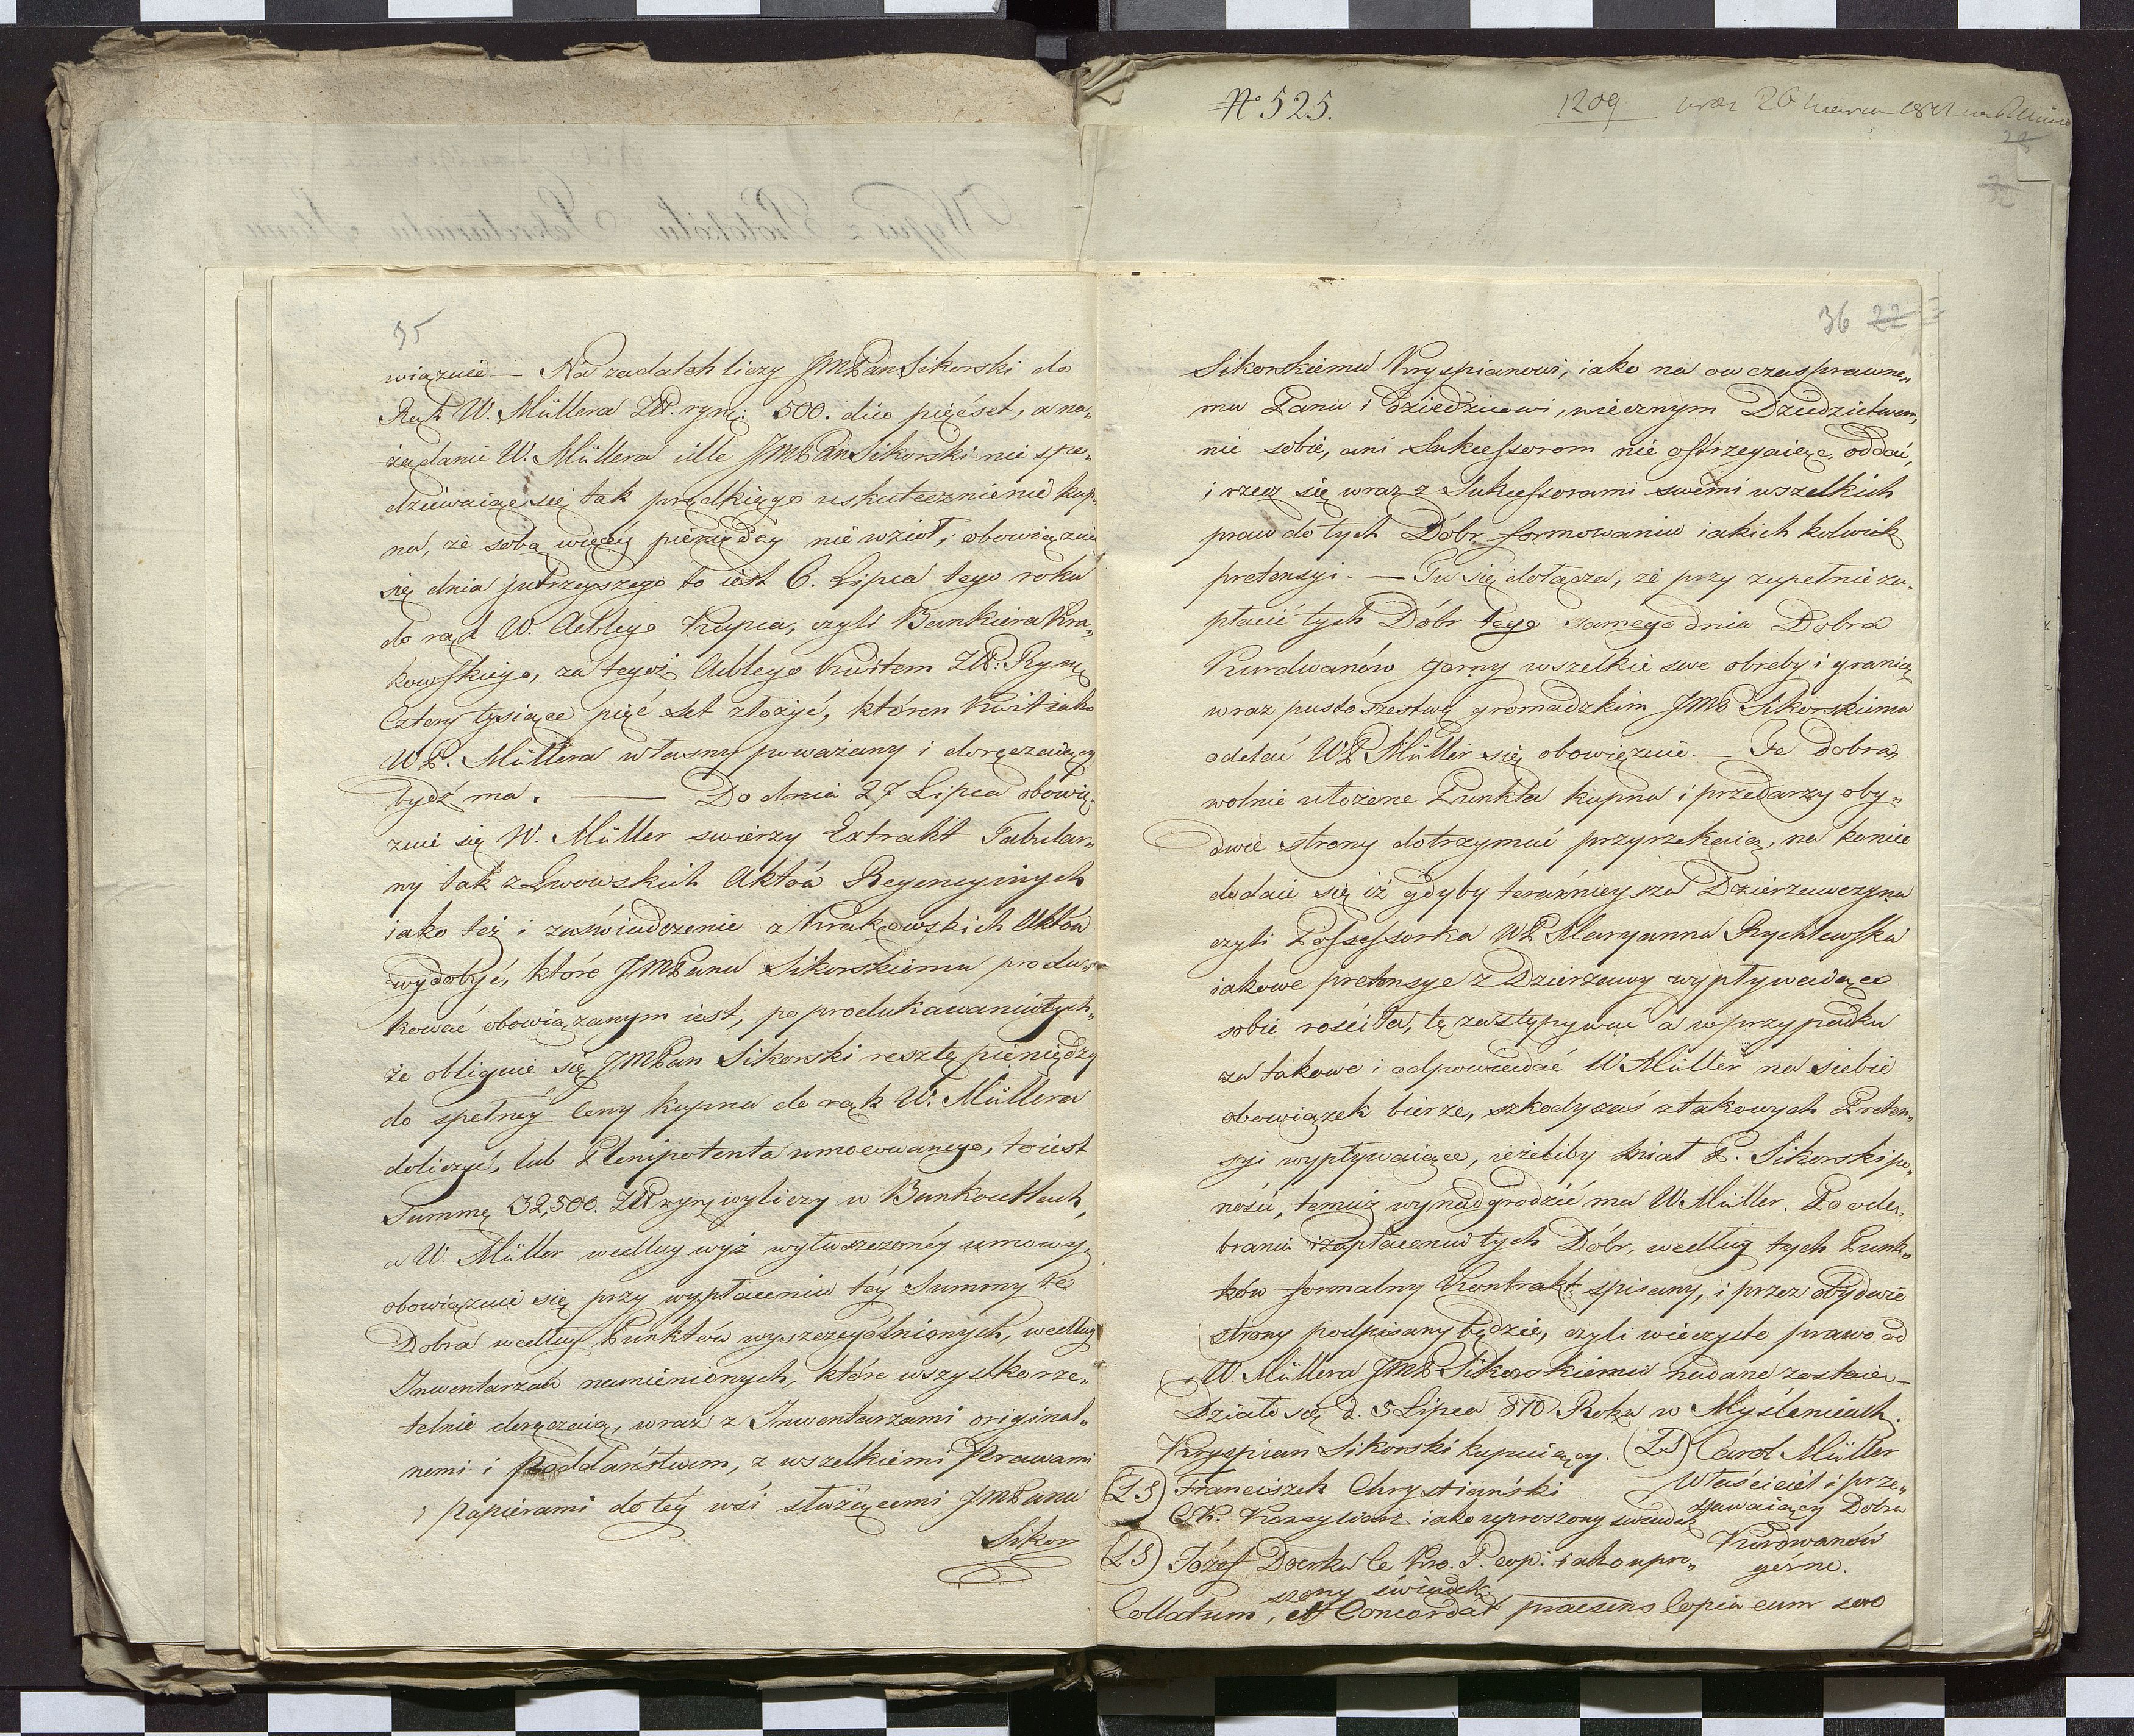 N° 525.
1209
35
wiązuie — Na zadatek liczy JMPan Sikorski do
Rąk W. Müllera ZłR. ryn: 500. dico pięćset, a na„
żądanie W. Müllera ille JMPan Sikorski nie spo„
dziewaiąc się tak prędkiego uskutecznienie kup„
na, ze sobą więcéy pieniędzy nie wzioł, obowiązuie
się dnia jutrzeyszego to iest 6. Lipca tego roku
do rąk W. Aeblego Kupca, czyli Bankiera Kra„
kowskiego, za tegoż Aeblego Kwitem ZłR: Ryń:
Cztery tysiące pięć set złożyć, któren Kwit iako
WP. Müllera własny poważany i doręczaiący
bydź ma. — Do dnia 27 Lipca obowią„
zuie się W. Müller swieży Extrakt Tabular„
ny tak z Lwowskich Aktów Regencyinych
iako też i zaświadczenie z Krakowskich Aktów
wydobyć, które JMPanu Sikorskiemu produ„
kować obowiązanym iest, po produkowaniu tych„
że obliguie się JMPan Sikorski resztę pieniędzy
do spełnéy Ceny kupna do rąk W. Müllera
doliczyć, lub Plenipotenta umocowanego, to iest
Summę 32,500. ZłR ryń: wyliczy w Bankocetlach,
a W. Müller według wyż wytłuszczonéy umowy,
obowiązuie się przy wypłaceniu téy Summy te
Dobra według Punktów wyszczególnionych, według
Inwentarzów namienionych, które wszystko rze„
telnie doręczaią, wraz z Inwentarzami original„
nemi i Poddaństwem, z wszelkiemi Prawami
i Papierami do téy wsi służącemi JMPanu
Sikor
36 22
Sikorskiemu Kryspianowi, iako na ow czas prawne„
mu Panu i Dziedzicowi, wiecznym Dziedzictwem,
nic sobie, ani Sukcessorom nie ostrzegaiąc, oddać,
i rzecz się wraz z Sukcessorami swemi wszelkich
praw do tych Dóbr formowaniu iakich kolwiek
pretensyi. — Tu się dołącza, że przy zupełnie za„
płacie tych Dóbr tego samego dnia Dobra
Kurdwanów gorny wszelkie swe obreby i granicę
wraz pusto szestwę gromadzkim JMP Sikorskiemu
oddać WP. Müller się obowięzuie — Te dobra„
wolnie ułożone Punkta kupna i przedarzy oby„
dwie strony dotrzymać przyrzekaią, na konice
dodaie się iż gdyby teraźnieysza Dzierzawczyna
czyli Possessorka WP Maryanna Rychlewska
iakowe pretensye z Dzierzawy wypływaiące
sobie rościła, tę zastępywać a w przypadku
za takowe i odpowiedać W Müller na siebie
obowiązek bierze, szkody zaś z takowych Preten„
syi wypływaiące, ieżeliby miał P. Sikorski po„
nosić, temuż wynadgrodzić ma W Müller. Po ode„
braniu i zapłaceniu tych Dóbr, według tych Punk„
tów formalny Kontrakt spisany, i przez obydwie
strony podpisany będzie, czyli wieczyste prawo od
W. Müllera JMP Sikorskiemu nadane zostaie —
Działo się d. 5 Lipca 810 Roku w Myślenicach.
Kryspian Sikorski kupuiący. (LS) Carol Müller
Właściciel i prze„
dawaiący Dobra
Kurdwanów
górne.
(LS) Franciszek Chrystiański
C.K. Konsyliarz iako uproszony świadek
(LS) Józef Doerka Ce Kro. P. eop. iako upro„
szony świadek
Collatum, et Concordat praesens Copia cum suo